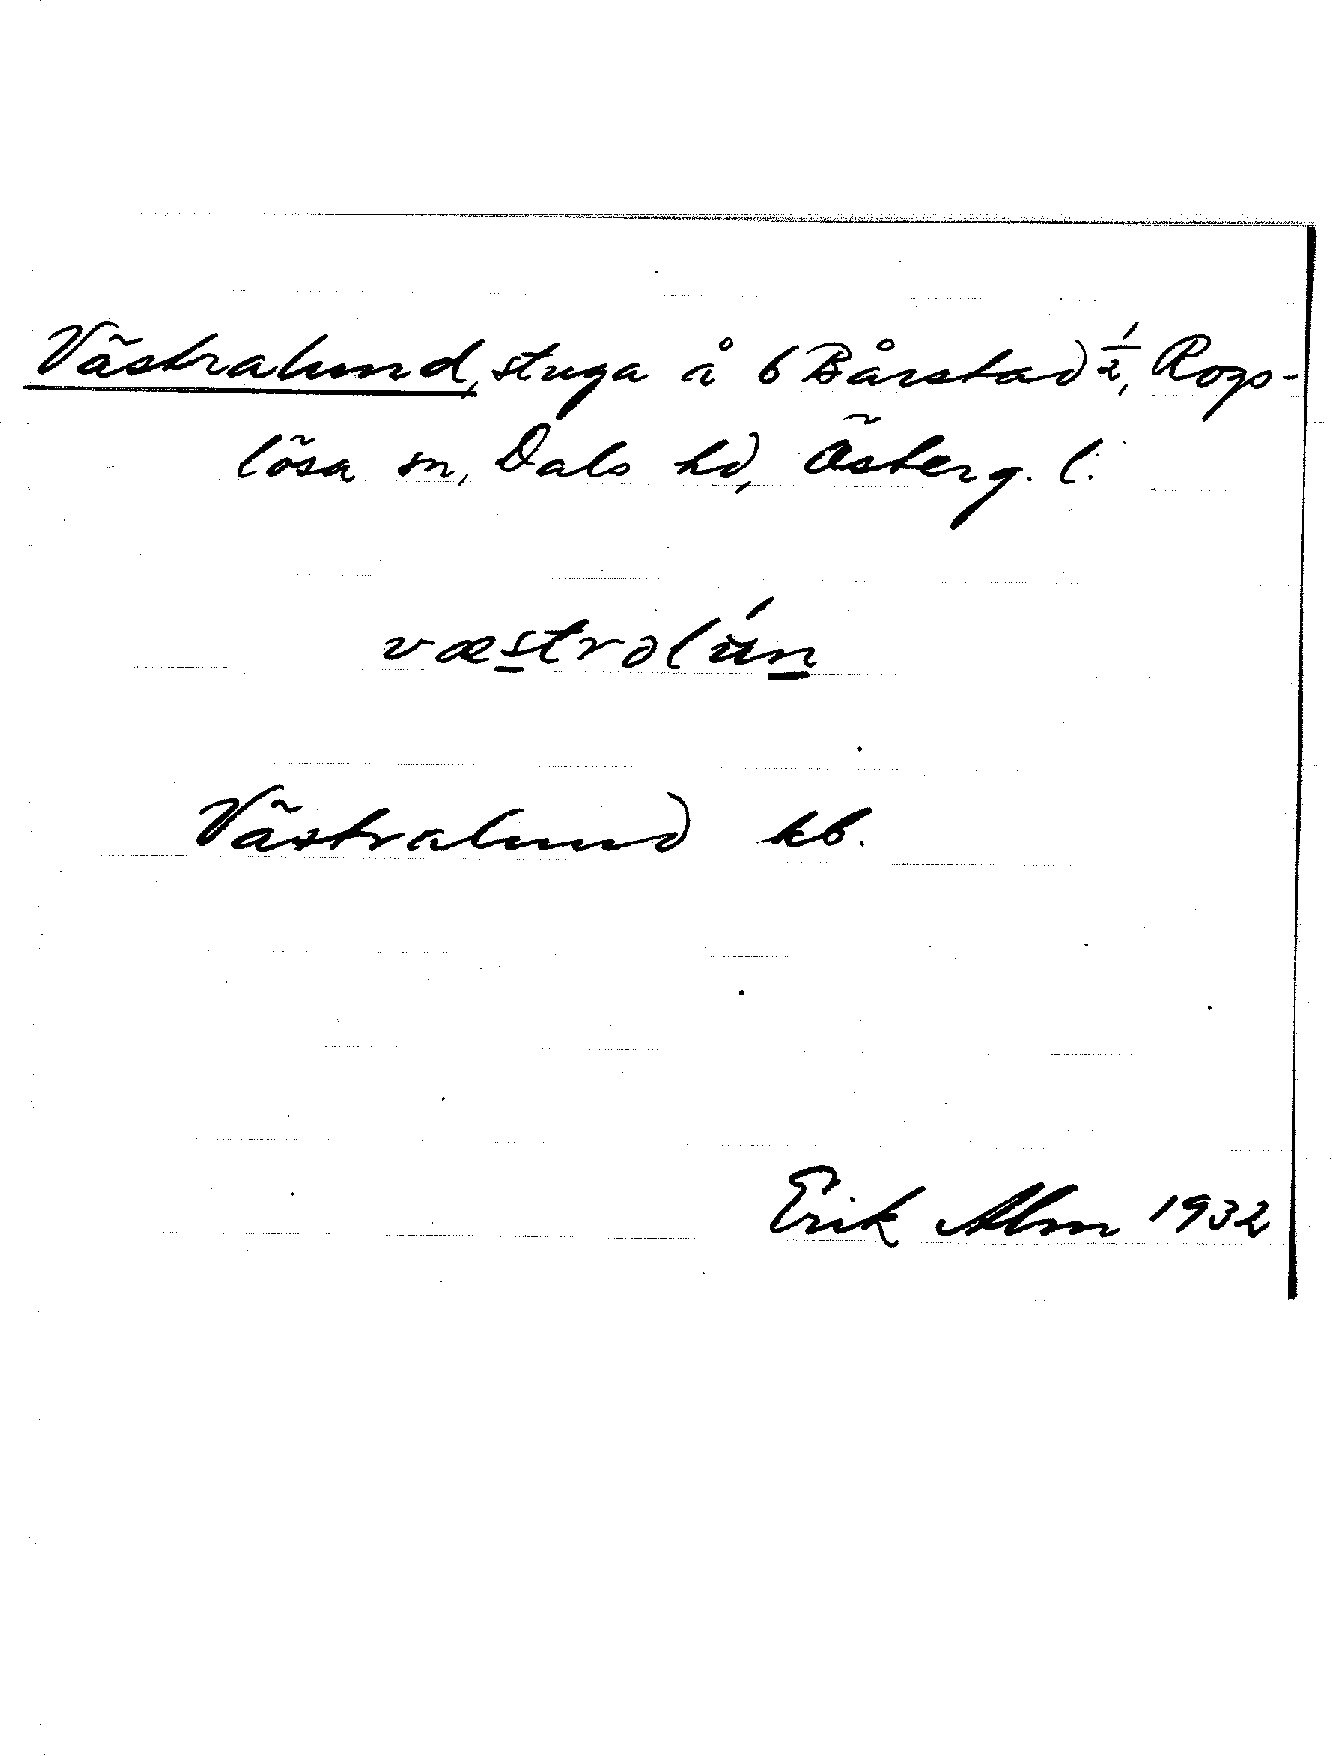 Västralund, stuga å 6 Bårstad ½, Rogs-
lösa sn, Dals hd, Österg. l.
væstrolún
Västralund kb.
Erik Alm 1932